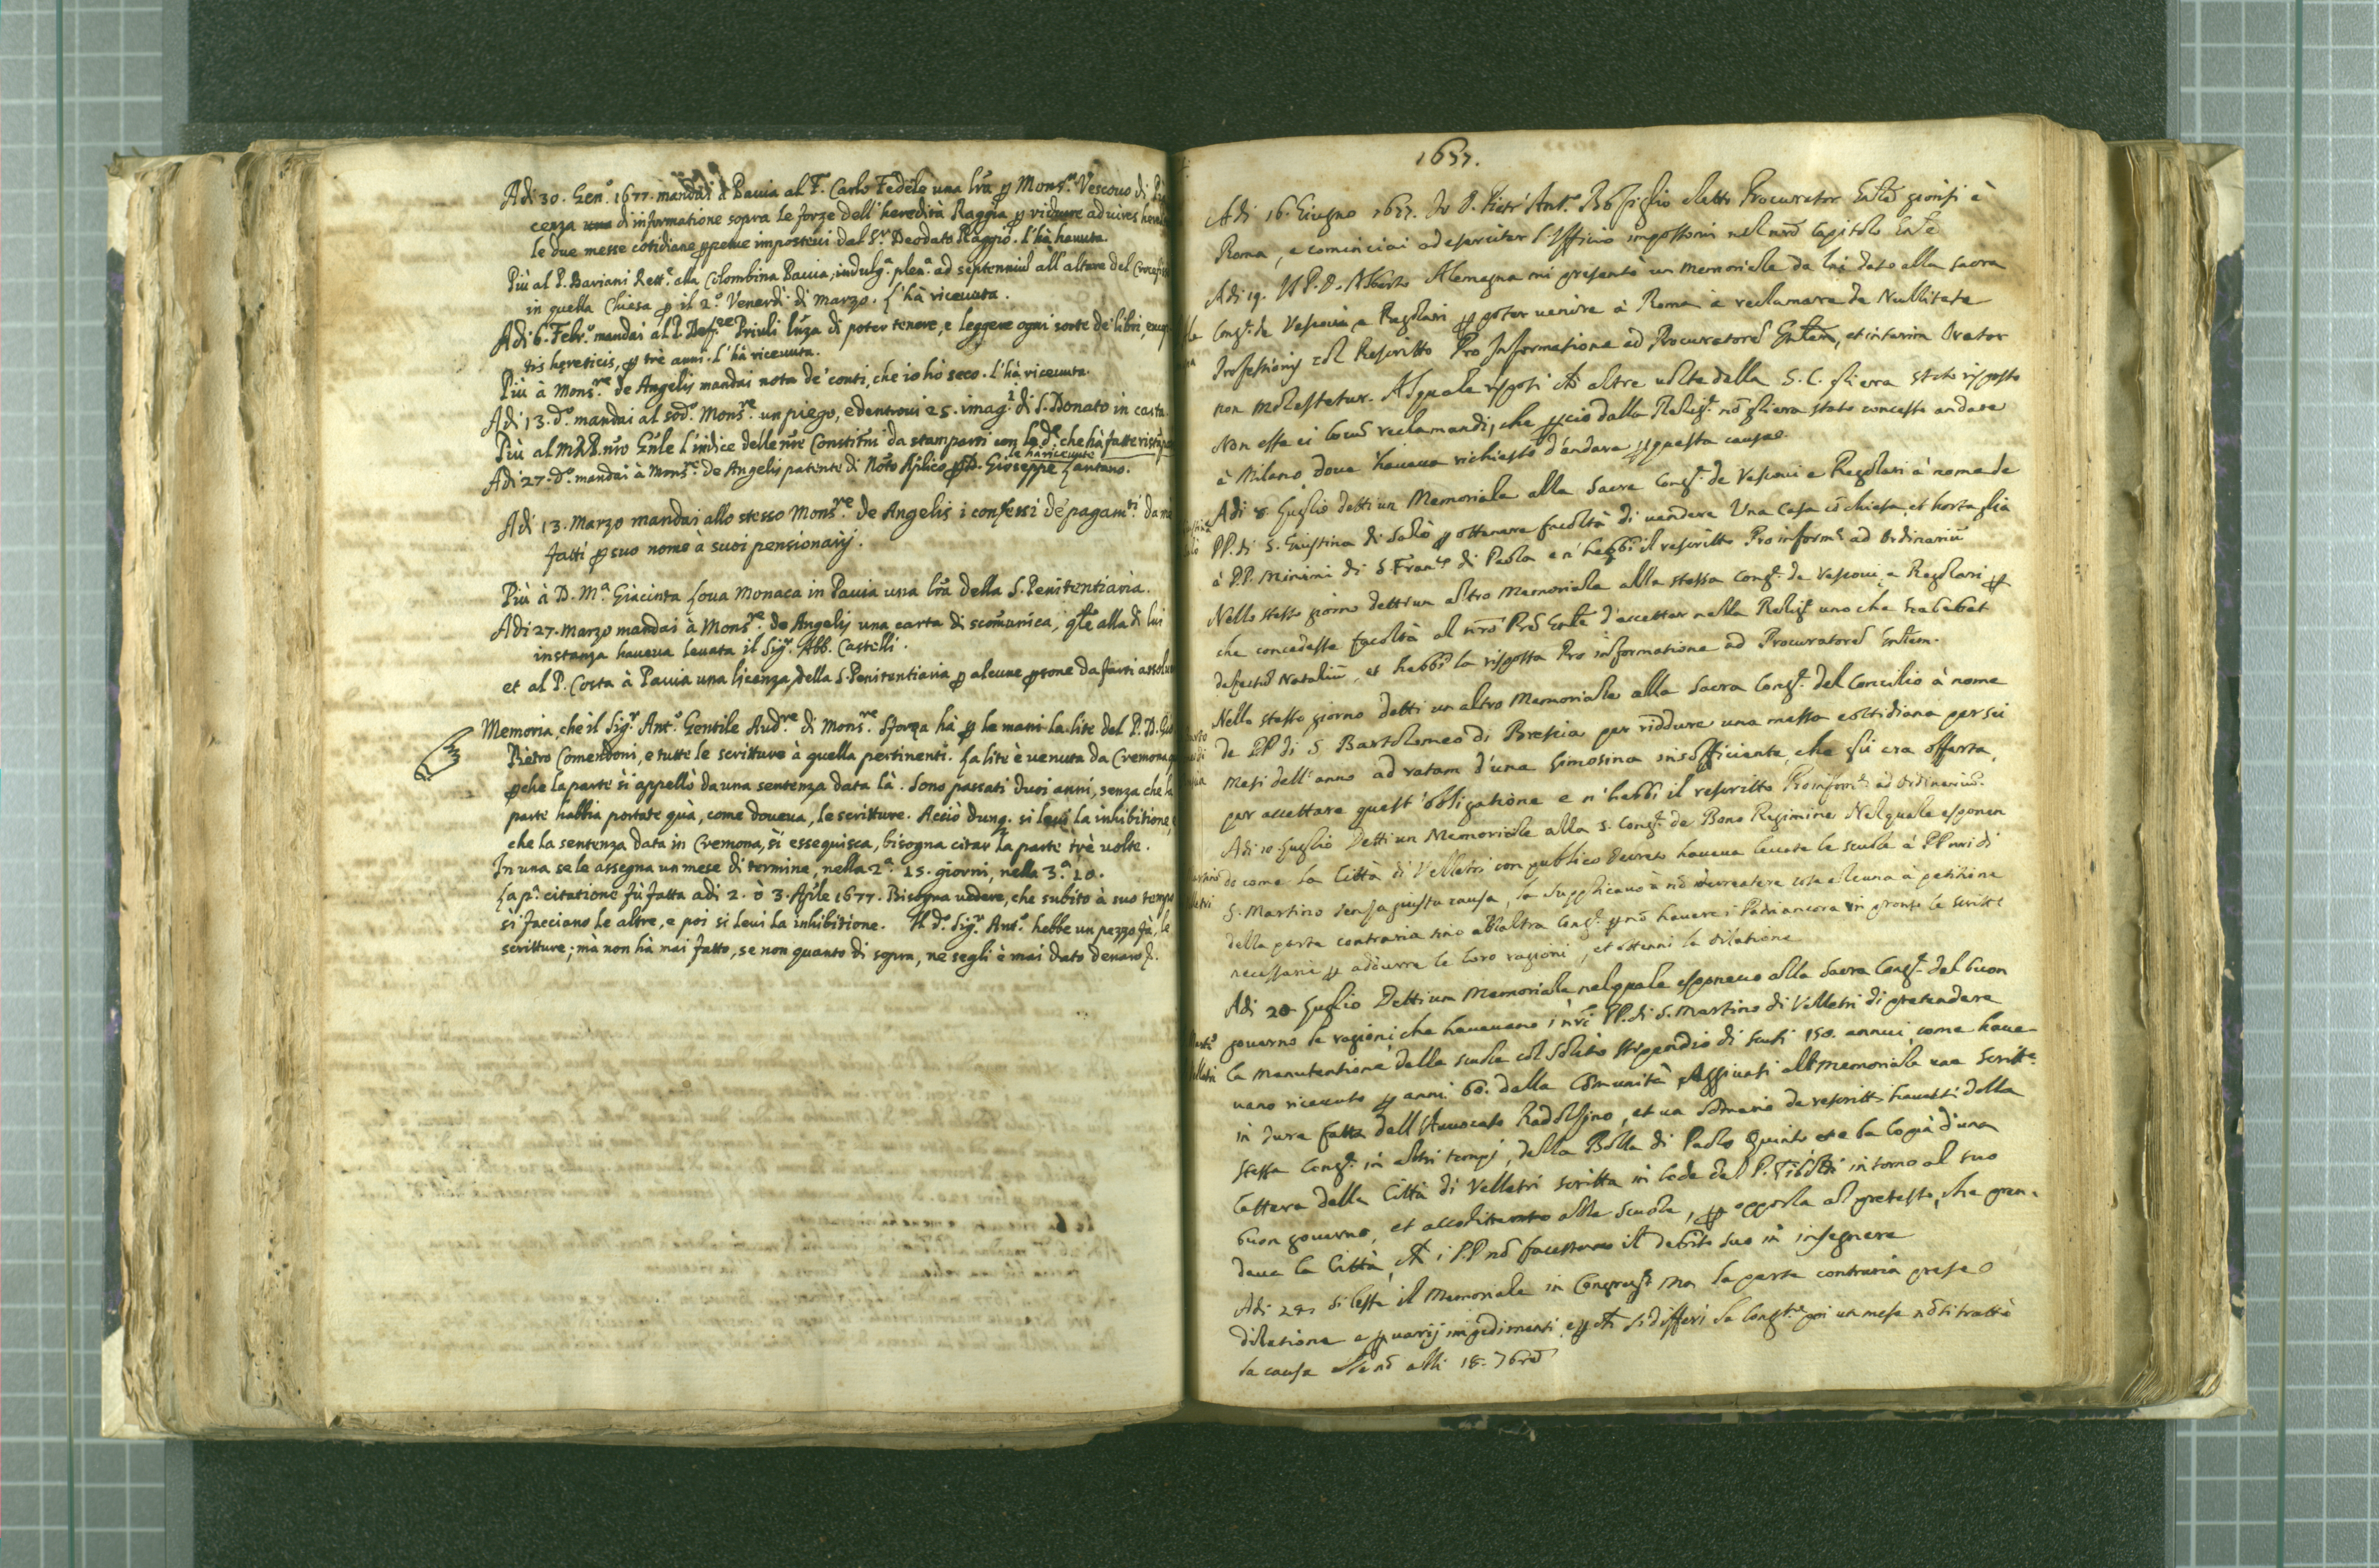 Adi 30. Gen.º 1677. mandai à Pauia al P. Carlo Fedele una lra p Mons.re Vescouo di
cenza una di informatione sopra le forze dell'heredità Raggia p ridurre ad uires
le due messe cotidiane ppetue imposteui dal S.r Deodato Raggio. l'hà hauuta.
Più al P. Bariani Rett.e alla Colombina Pauia, indulg.a plen.a ad septenniũ all'altare del
in quella Chiesa p il 2.º Venerdì di marzo. l'hà riceuuta.
Adi 6. Febr.º mandai al P. Priuli di poter tenere, e leggere ogni sorte de' libri,
tis hereticis, p trè anni. l'hà riceuuta.
Più à Mons.re de Angelis mandai nota de' conti, che io hò seco. l'hà riceuuta.
Adi 13. d.º mandai al sod.º Mons.re un piego, e dentroui 25. imag.i di S. Donato in carta.
Più al nro Gnle l'indice delle nre Constitni da stamparsi con che hà fatte
le hà riceuute
Adi 27. d.º mandai à Mons.re de Angelis patente di Noto Aplico p D. Gioseppe Lantano.
Adi 13. Marzo mandai allo stesso Mons.re de Angelis i confessi de' pagam.ti da
fatti p suo nome à suoi pensionarij.
Più à D. M.a Giacinta Loua Monaca in Pauia una lra della S. Penitentiaria.
Adi 27. Marzo mandai à Mons.re de Angelis una carta di scom̃unica, qle alla di lui
instanza haueua leuata il Sig.r Abb. Castelli.
et al P. Costa à Pauia una licenza della S. Penitentiaria p alcune psone da farsi
Memoria, che il Sig.r Ant.º Gentile Aud.re di Mons.re Sforza hà p le mani la lite del P. D.
Pietro Comendoni, e tutte le scritture à quella pertinenti. La lite è uenuta da Cremona
pche la parte si appellò da una sentenza data là. Sono passati duoi anni, senza che
parte habbia portate quà, come doueua, le scritture. Acciò dunq. si leui la inhibitione,
che la sentenza data in Cremona, si esseguisca, bisogna citar la parte trè uolte.
In una se le assegna un mese di termine, nella 2.a 15. giorni, nella 3.a 10.
La p.a citatione fù fatta adi 2. ò 3. Aprile 1677. Bisogna uedere, che subito à suo
si facciano le altre, e poi si leui la inhibitione. Il d.º Sig.r Ant.º hebbe un pezzo fà, le
scritture; mà non hà mai fatto, se non quanto di sopra, ne segli è mai dato denaro
1657.
Adi 16. Giugno 1657. Io D. Pietr' Ant.º eletto Procurator Gnle gionsi à
Roma, e cominciai ad esercitar l'Ufficio impostomi nel nrõ Capitolo Gnle
Adi 19. Il P. D. Alberto Alemagna mi presentò un memoriale da lui dato alla sacra
Cong.e de Vescoui e Regolari p poter uenire à Roma à reclamare de Nullitate
Professionis col Rescritto Pro Informatione ad Procuratorẽ Gnlem, et interim Orator
non molestetur. Al quale risposi che altre uolte dalla S. C. gli era stato risposto
Non esse ei locũ reclamandi, che pciò dalla Relig.e nõ gli era stato concesso andare
à Milano doue haueua richiesto d'andare p questa causa.
Adi 8 Luglio detti un Memoriale alla Sacra Cong.e de Vescoui e Regolari à nome de
PP. di S. Giustina di Salò p ottenere facoltà di uendere Una Casa cõ chiesa, et hortaglia
à PP. Minimi di S. Fran.co di Paola e n'hebbi il rescritto Pro inform.e ad Ordinariũ
Nello stesso giorno detti un altro Memoriale alla stessa Cong.e de Vescoui e Regolari p
che concedesse facoltà al nrõ Prẽ Gnle d'accettar nella Relig.e uno che habebat
defectũ Nataliũ, et hebbi la risposta Pro informatione ad Procuratorẽ Gnlem.
Nello stesso giorno detti un altro Memoriale alla Sacra Cong.e del Concilio à nome
de PP. di S. Bartolomeo di Brescia per riddure una messa cottidiana per sei
mesi dell'anno ad ratam d'una limosina insofficiente, che gli era offerta,
per accettare quest'obligatione e n'hebbi il rescritto Pro inform.e ad Ordinarium.
Adi 10 Luglio Detti un Memoriale alla S. Cong.e de Bono Regimine Nel quale esponen
do come la Città di Velletri con publico decreto haueua leuate le scuole à PP. nri di
S. Martino senza giusta causa, la supplicauo à nõ decretare cosa alcuna à petitione
della parte contraria sino all'altra Cong.e p nõ hauere i Padri ancora in pronto le scritt.e
necessarie p addurre le loro ragioni, et ottenni la dilatione
Adi 20 Luglio Detti un Memoriale nel quale esponeuo alla Sacra Cong.e del buon
gouerno le ragioni che haueuano i nri PP. di S. Martino di Velletri di pretendere
la manutentione delle scuole col solito stippendio di scudi 150. annui, come haue-
uano riceuuto p anni 60. dalla Cõmunità, Aggiunti al memoriale una Scritt.a
in Jure fatta dall'Auuocato, et un Sõmario de rescritti hauuti dalla
stessa Cong.e in altri tempi, della Bolla di Paolo Quinto et e la Copia d'una
lettera della Città di Velletri scritta in lode del P. intorno al suo
buon gouerno, et alle scuole, p opporla al pretesto, che pren-
deua la Città, che i PP. nõ facessero il debito suo in insegnare
Adi si lesse il Memoriale in Congreg.e ma la parte contraria prese
dilatione e p uarij impedimenti, si differì la Cong.ne poi un mese nõ si trattò
la causa se nõ alli 18. 7bre